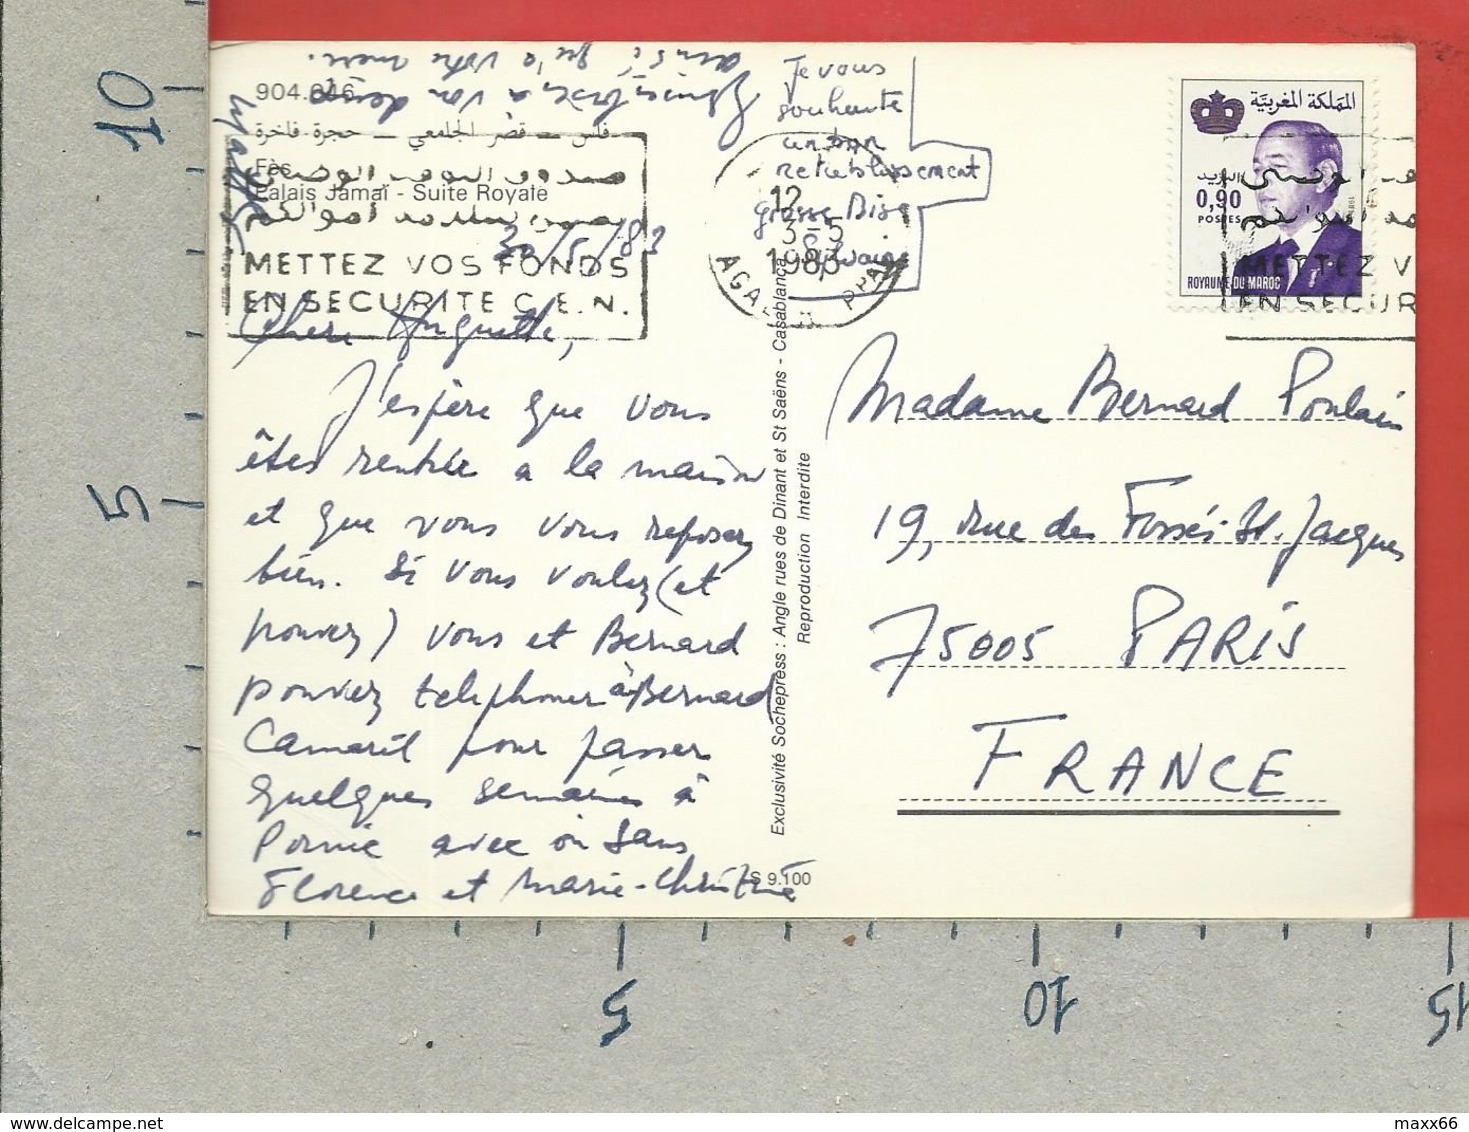 904.016
فاس – قصر الجامعي – حجرة فاخرة
Fès
Palais Jamaï - Suite Royale
METTEZ VOS FONDS
EN SECURITE C.E.N.
12
3-5
1983
AGADIR PPAL
المملكة المغربية
البريد
0,90
POSTES
ROYAUME DU MAROC
METTEZ V
EN SECUR
Je vous
souhaite
un bon
retablissement
grosse Bise
Sylvain
Chere Huguette,
J'espère que vous
êtes rentrée a la maison
et que vous vous reposez
bien. Si vous voulez (et
pouvez) vous et Bernard
pouvez telephoner à Bernard
Camaret pour passer
quelques semaines à
Pornic avec ou sans
Florence et Marie-Christine
ainsi qu'a votre mere.
Exclusivité Sochepress : Angle rues de Dinant et St Saëns - Casablanca
Reproduction Interdite
S 9.100
Madame Bernard Poulain
19, rue des Fossés-St. Jacques
75005 PARIS
FRANCE
10
5
5
10
15
maxx66